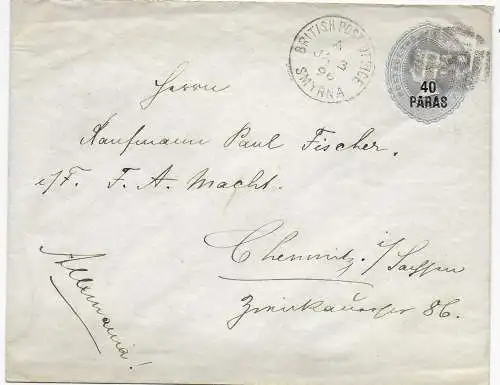 BRITISH POST OFFICE
A
JA 3
96
SMYRNA
40
PARAS
Herrn
Kaufmann Paul Fischer.
i/F. F. A. Macht.
Chemnitz i/Sachsen
Zwickauerstr 86.
Allemania!